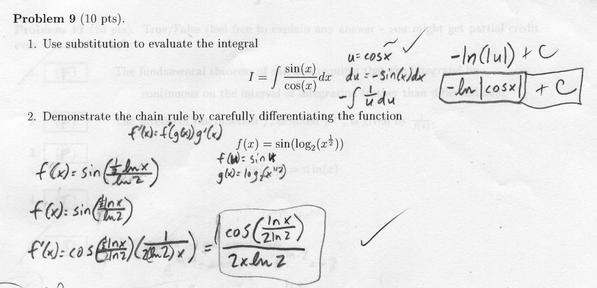 Problem 9 (10 pts).
1. Use substitution to evaluate the integral
I = ∫ sin(x)/cos(x) dx
u = cosx ✓
du = -sin(x)dx
-∫ 1/u du
-ln(|u|) + C
-ln|cosx| + C
2. Demonstrate the chain rule by carefully differentiating the function
f'(x) = f'(g(x))g'(x)
f(x) = sin(log₂(x^½))
f(x) = sin x
g(x) = log₂(x^1/2)
f(x) = sin(½ lnx / ln 2)
f(x) = sin(lnx / 2 ln 2)
f'(x) = cos(lnx / 2ln2)(1 / 2(ln 2)x) = cos(ln x / 2ln2) / 2x ln 2 ✓